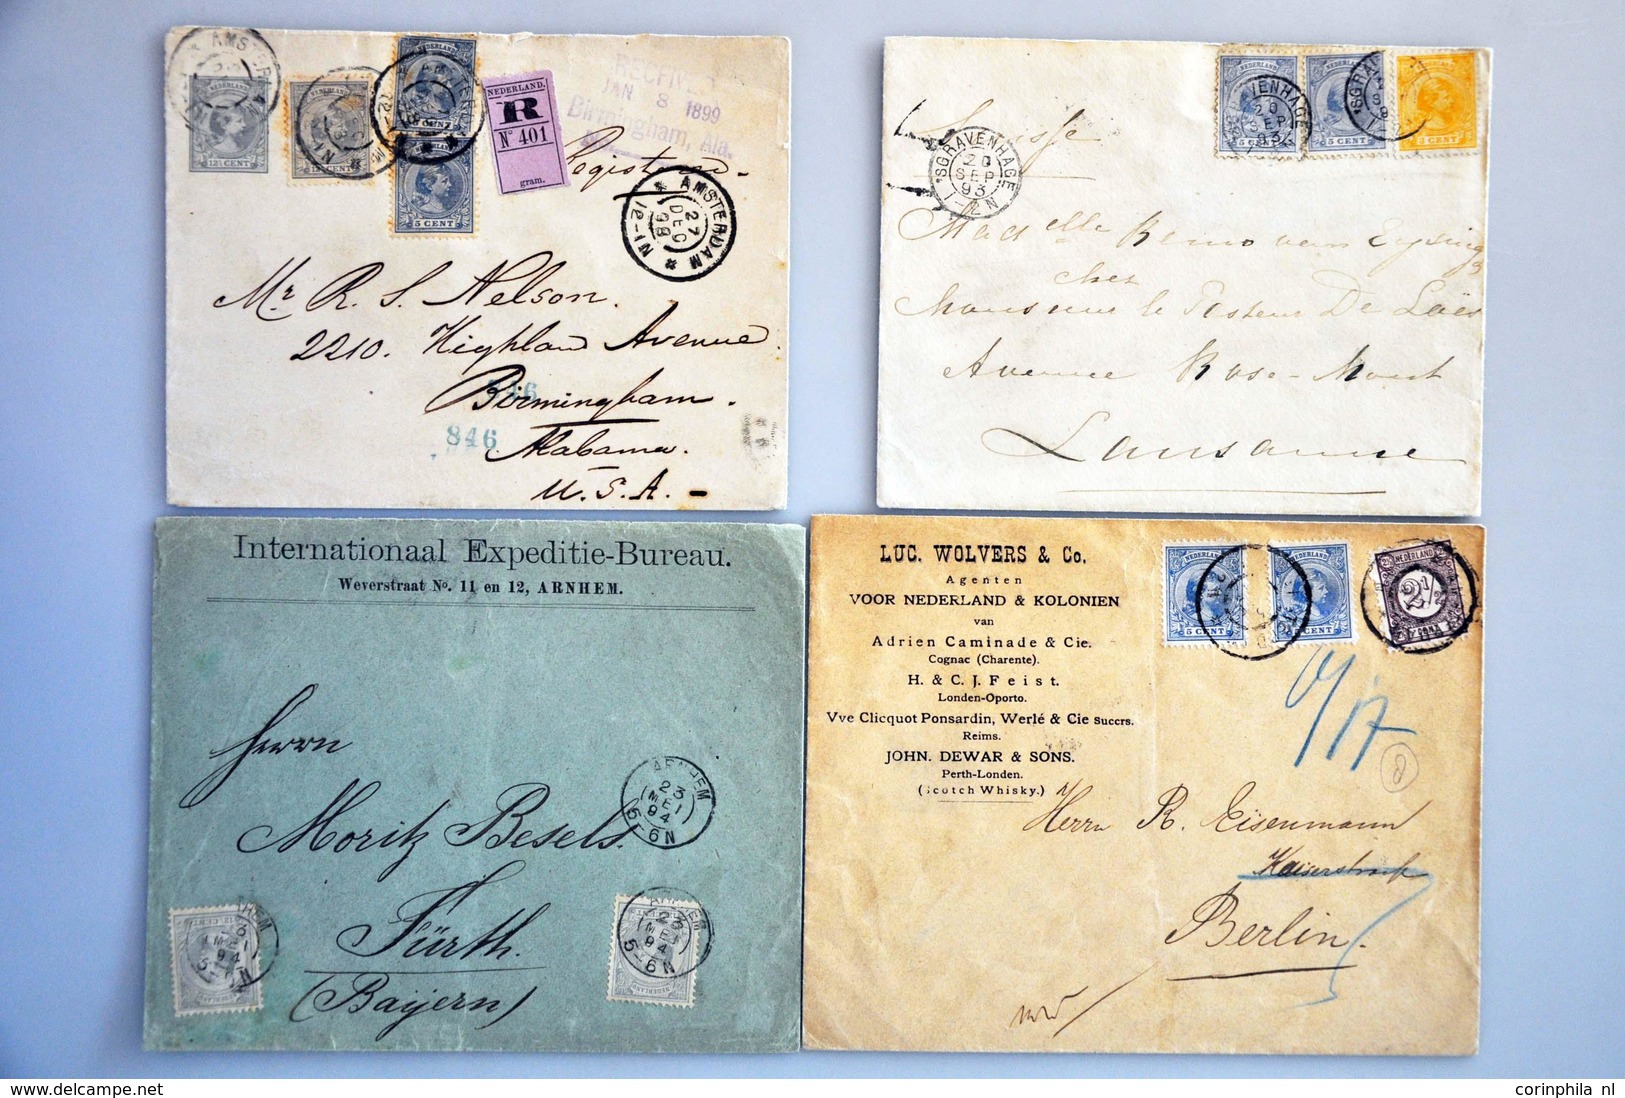 AMSTERDAM
NEDERLAND
12½ CENT
12½ CENT
5 CENT
5 CENT
NEDERLAND.
R
Nº 401
gram.
RECEIVED
JAN 8 1899
Birmingham, Ala.
Registered
AMSTERDAM
27
DEC
98
12-1N
Mr R. S. Nelson.
2210. Highland Avenue.
846
Birmingham.
846
Alabama.
U.S.A.
NEDERLAND
NEDERLAND
NEDERLAND
5 CENT
5 CENT
3 CENT
'SGRAVENHAGE
20
SEP
93
'SGRAVENHAGE
20
SEP
93
1-2N
Suisse
chez
Monsieur le Pasteur De Laës
Avenue Rose-Mont
Lausanne
Internationaal Expeditie-Bureau.
Weverstraat No. 11 en 12, ARNHEM.
Herrn
ARNHEM
23
MEI
94
5-6N
Moritz Besels.
Fürth.
(Bayern)
ARNHEM
23
MEI
94
5-6N
LUC. WOLVERS & Co.
Agenten
VOOR NEDERLAND & KOLONIEN
van
Adrien Caminade & Cie.
Cognac (Charente).
H. & C. J. Feist.
Londen-Oporto.
Vve Clicquot Ponsardin, Werlé & Cie Succrs.
Reims.
JOHN. DEWAR & SONS.
Perth-Londen.
(Scotch Whisky.)
NEDERLAND
NEDERLAND
NEDERLAND
5 CENT
5 CENT
2½
Herrn R. Eisenmann
Kaiserstrasse
Berlin.
corinphila nl